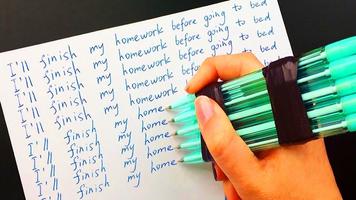 I'll finish my homework before going to bed
I'll finish my homework before going to bed
I'll finish my homework before going to bed
I'll finish my homework before going to bed
I'll finish my home
I'll finish my home
I'll finish my home
I'll finish my home